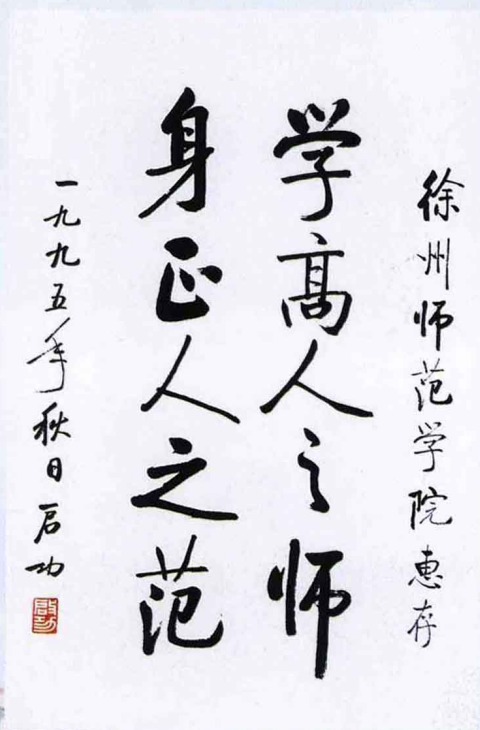 徐州师范学院惠存
学高人之师
身正人之范
一九九五年秋日启功
啟功